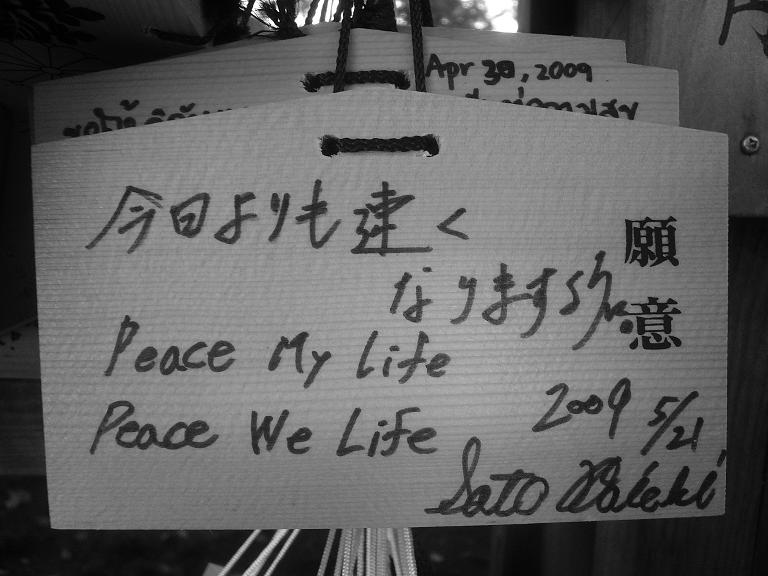 Apr 30, 2009
ขอให้
願意
今日よりも速く
なります
Peace My Life
Peace We Life
2009 5/21
Sato